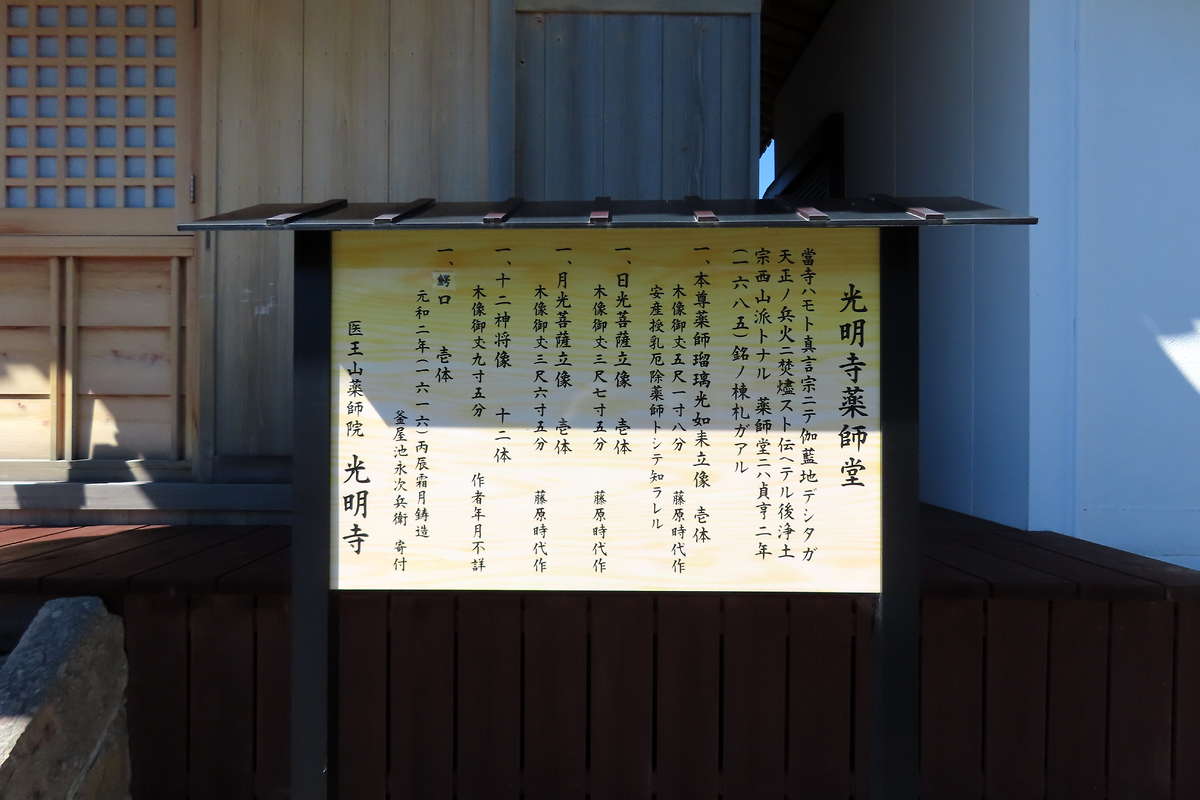 光明寺薬師堂
當寺ハモト真言宗ニテ伽藍地デシタガ
天正ノ兵火ニ焚燼スト伝ヘテル後浄土
宗西山派トナル　薬師堂ニハ貞亨二年
(一六八五)銘ノ棟札ガアル
一、本尊薬師瑠璃光如来立像　壱体
木像御丈五尺一寸八分　藤原時代作
安産授乳厄除薬師トシテ知ラレル
一、日光菩薩立像　壱体
木像御丈三尺七寸五分　藤原時代作
一、月光菩薩立像　壱体
木像御丈三尺六寸五分　藤原時代作
一、十二神将像　十二体
木像御丈九寸五分　作者年月不詳
一、鰐口　壱体
元和二年(一六一六)丙辰霜月鋳造
釜屋池永次兵衛　寄付
医王山薬師院　光明寺